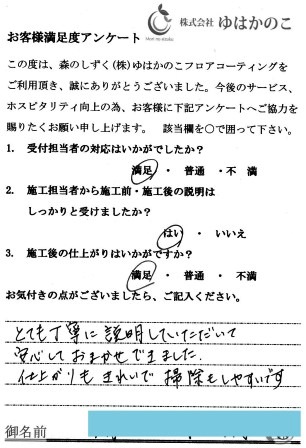 株式会社 ゆはかのこ
お客様満足度アンケート
この度は、森のしずく(株)ゆはかのこフロアコーティングを
ご利用頂き、誠にありがとうございました。今後のサービス、
ホスピタリティ向上の為、お客様に下記アンケートへご協力を
賜りたくお願い申し上げます。 該当欄を○で囲って下さい。
1. 受付担当者の対応はいかがでしたか？
満足 ・ 普通 ・ 不満
2. 施工担当者から施工前・施工後の説明は
しっかりと受けましたか？
はい ・ いいえ
3. 施工後の仕上がりはいかがですか？
満足 ・ 普通 ・ 不満
お気付きの点がございましたら、ご記入ください。
とても丁寧に説明していただいて
安心しておまかせできました。
仕上がりもきれいで掃除もしやすいです
御名前